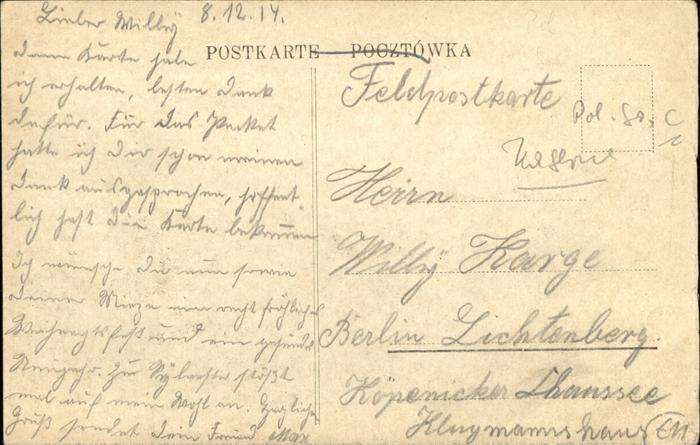 Lieber Willy 8.12.14.
deine Karte habe
ich erhalten, besten Dank
dafür. Für das Packet
hatte ich Dir schon meinen
Dank ausgesprochen, hoffent-
lich hast die Karte bekommen
Ich wünsche Dir nun sowie
deiner Mieze ein recht fröhliches
Weihnachtsfest und ein gesundes
Neujahr. Zur Sylvester stößt
mal auf mein Wohl an. Herzliche
Grüß sendet dein Freund Max
POSTKARTE POCZTÓWKA
Feldpostkarte
Pol.
Herrn
Willy Karge
Berlin Lichtenberg.
Köpenicker Chaussee